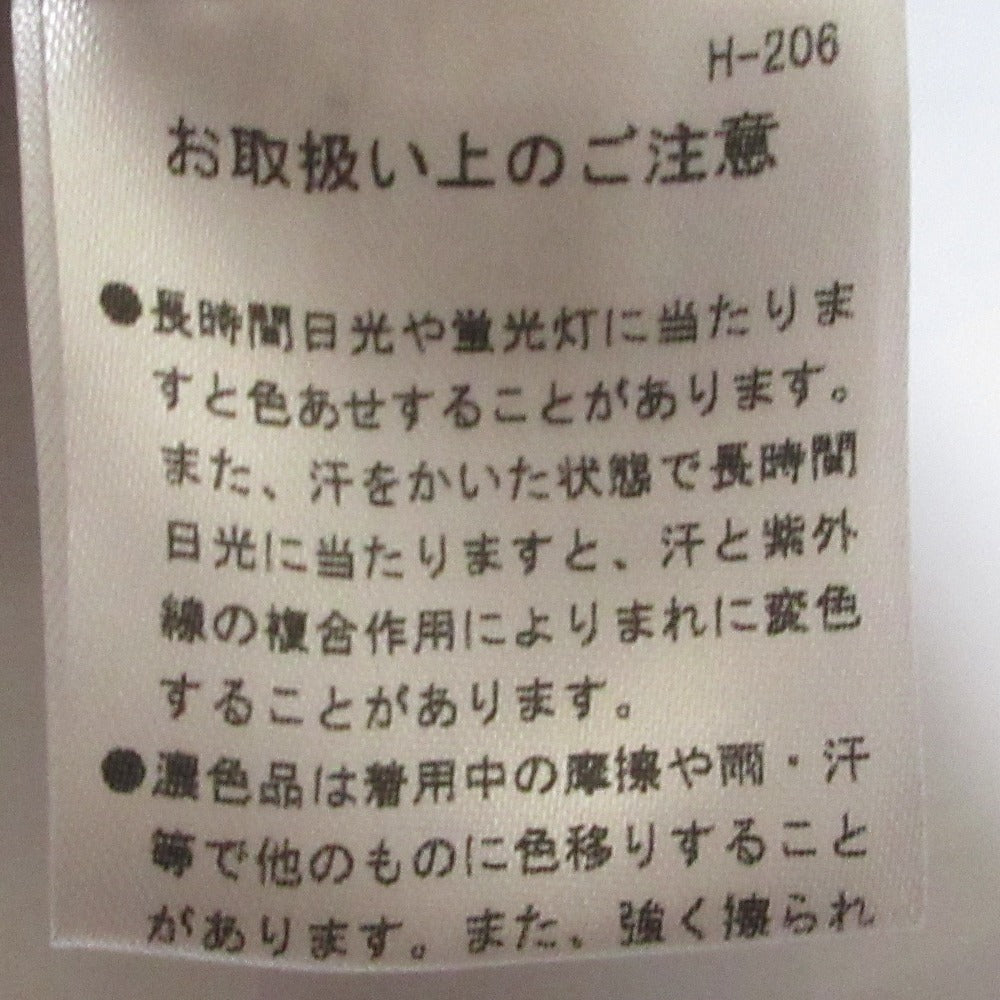 H-206
お取扱い上のご注意
●長時間日光や蛍光灯に当たりま
すと色あせすることがあります。
また、汗をかいた状態で長時間
日光に当たりますと、汗と紫外
線の複合作用によりまれに変色
することがあります。
●濃色品は着用中の摩擦や雨・汗
等で他のものに色移りすること
があります。また、強く擦られ